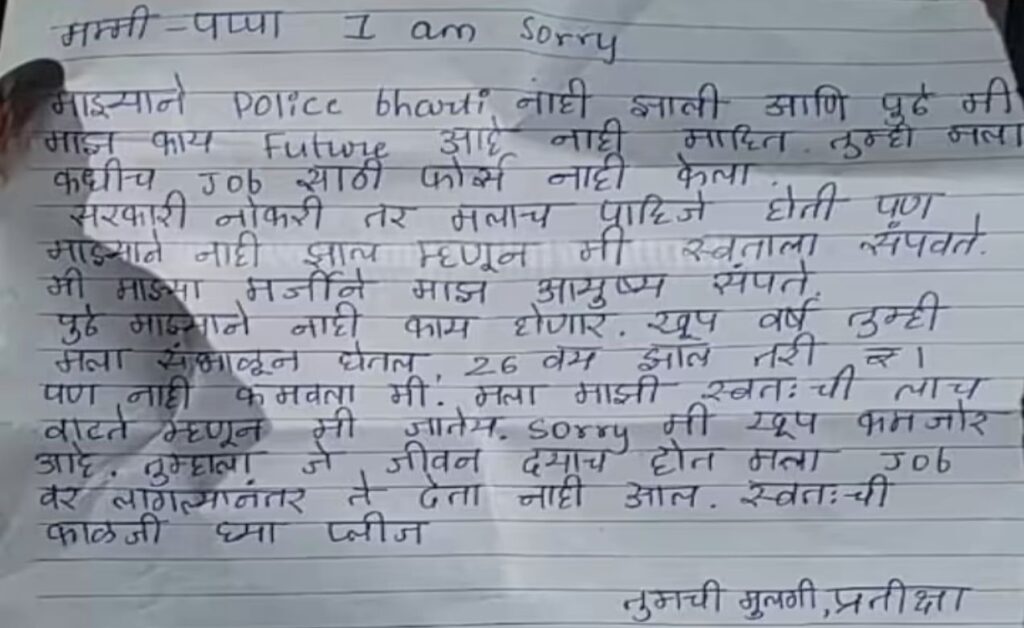 मम्मी - पप्पा I am Sorry
माझ्याने Police bharti नाही झाली आणि पुढे मी
माझ काय Future आहे नाही माहित. तुम्ही मला
कधीच Job साठी फोर्स नाही केला.
सरकारी नोकरी तर मलाच पाहिजे होती पण
माझ्याने नाही झाल म्हणून मी स्वताला संपवते.
मी माझ्या मर्जीने माझ आयुष्य संपते.
पुढे माझ्याने नाही काय होणार. खूप वर्ष तुम्ही
मला संभाळून घेतल. 26 वय झाल तरी ₹ 1
पण नाही कमवला मी. मला माझी स्वतःची लाच
वाटते म्हणून मी जातेय. Sorry मी खूप कमजोर
आहे. तुम्हाला जे जीवन दयाच होत मला Job
वर लागल्यानंतर ते देता नाही आल. स्वतःची
काळजी घ्या प्लीज
तुमची मुलगी, प्रतीक्षा